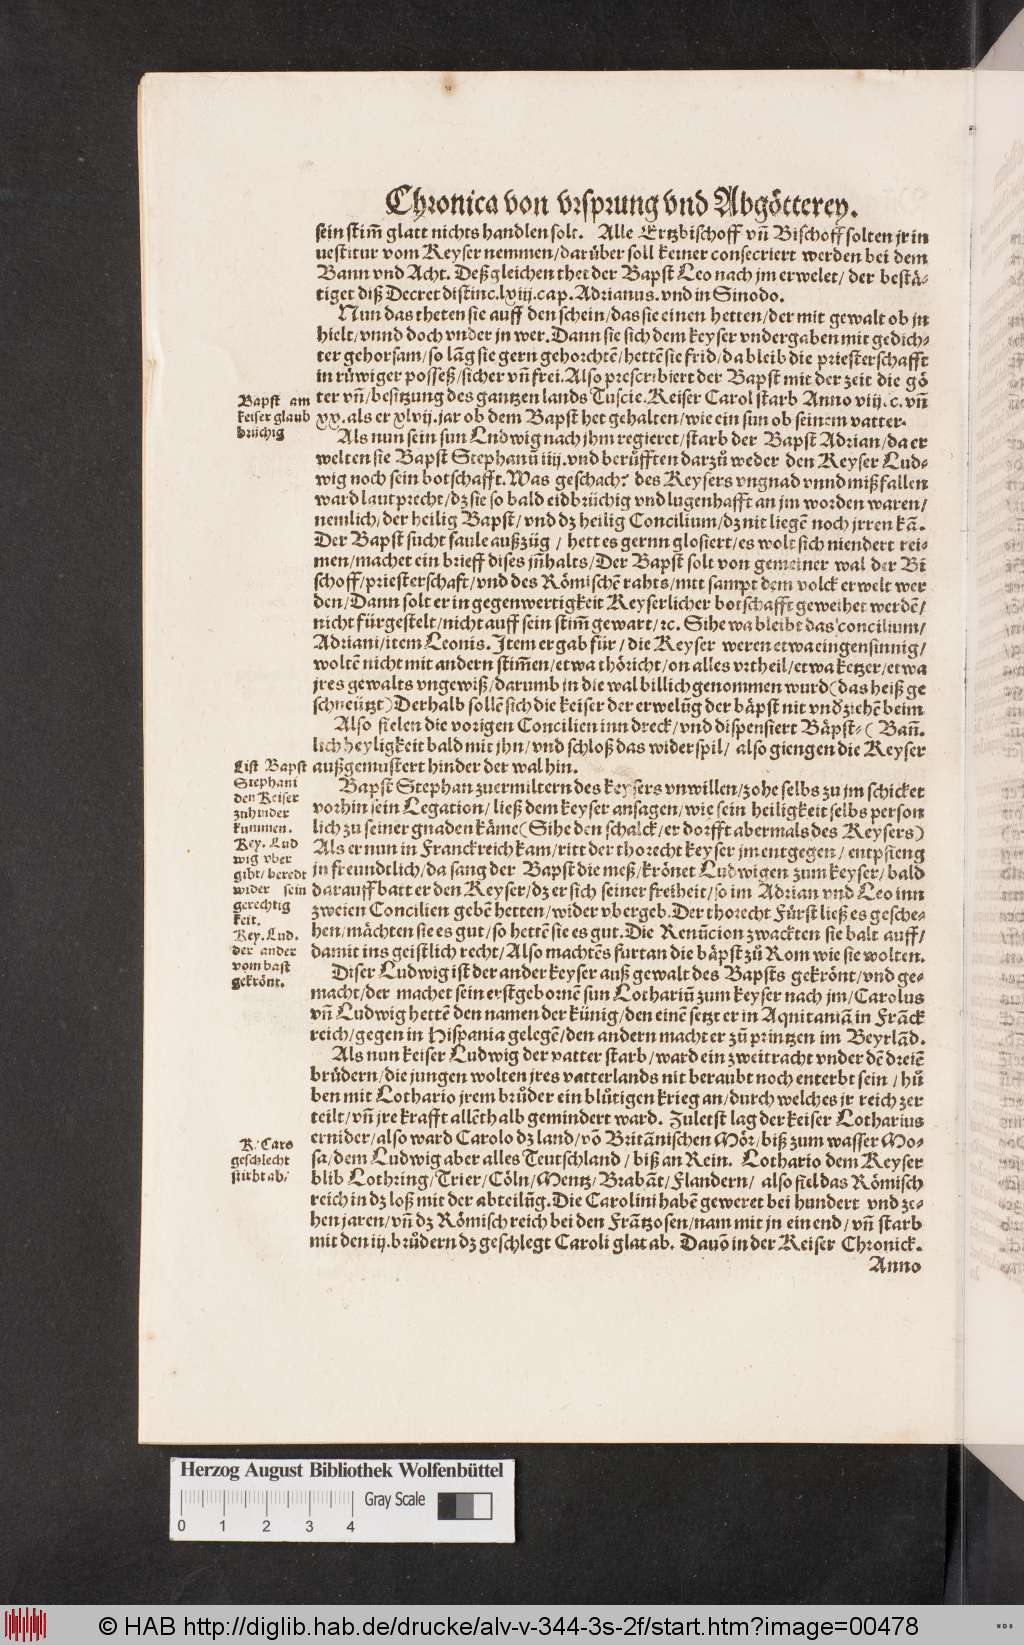 Chronica von vrsprung vnd Abgötterey.
sein stim̃ glatt nichts handlen solt. Alle Ertzbischoff vñ Bischoff solten jr in
uestitur vom Keyser nemmen/darüber soll keiner consecriert werden bei dem
Bann vnd Acht. Deßgleichen thet der Bapst Leo nach jm erwelet/ der bestä-
tiget diß Decret distinc.lxiij.cap.Adrianus.vnd in Sinodo.
Nun das theten sie auff den schein/das sie einen hetten/der mit gewalt ob jn
hielt/vnnd doch vnder jn wer. Dann sie sich dem keyser vndergaben mit gedich-
ter gehorsam/so lãg sie gern gehorchtẽ/hettẽ sie frid/da bleib die priesterschafft
in rüwiger posseß/sicher vñ frei. Also prescribiert der Bapst mit der zeit die gö
ter vñ/besitzung des gantzen lands Tuscie. Keiser Carol starb Anno viij.c.vñ
xx.als er xlvij.jar ob dem Bapst het gehalten/wie ein sun ob seinem vatter.
Bapst am
keiser glaub
brüchig
Als nun sein sun Ludwig nach jhm regieret/starb der Bapst Adrian/da er
welten sie Bapst Stephanũ iiij.vnd berůfften darzů weder den Keyser Lud-
wig noch sein botschafft. Was geschach? des Keysers vngnad vnnd mißfallen
ward laut precht/dz sie so bald eidbrüchig vnd lugenhafft an jm worden waren/
nemlich/der heilig Bapst/vnd dz heilig Concilium/dz nit liegẽ noch jrren kã.
Der Bapst sucht faule außzüg / hett es gernn glosiert/es wolt sich niendert rei-
men/machet ein brieff dises jñhalts/Der Bapst solt von gemeiner wal der Bi
schoff/priesterschaft/vnd des Römischẽ rahts/mit sampt dem volck erwelt wer
den/Dann solt er in gegenwertigkeit Keyserlicher botschafft geweihet werdẽ/
nicht fürgestelt/nicht auff sein stim̃ gewart/ꝛc. Sihe wa bleibt das concilium/
Adriani/item Leonis. Item er gab für/die Keyser weren etwa eingensinnig/
woltẽ nicht mit andern stim̃en/etwa thöricht/on alles vrtheil/etwa ketzer/etwa
jres gewalts vngewiß/darumb jn die wal billich genommen wurd(das heiß ge
schneützt)Derhalb sollẽ sich die keiser der erwelũg der bäpst nit vnd̕ziehẽ beim
Also fielen die vorigen Concilien inn dreck/vnd dispensiert Bäpst-( Bañ.
lich heyligkeit bald mit jhn/vnd schloß das widerspil/ also giengen die Keyser
außgemustert hinder der wal hin.
List Bapst
Stephani
den Keiser
zuhinder
kummen.
Key. Lud
wig vber
gibt/beredt
wider sein
gerechtig
keit.
Key. Lud.
der ander
vom bast
gekrönt.
Bapst Stephan zuermiltern des keysers vnwillen/zohe selbs zu jm schicket
vorhin sein Legation/ließ dem keyser ansagen/wie sein heiligkeit selbs person
lich zu seiner gnaden käme(Sihe den schalck/er dorfft abermals des Keysers)
Als er nun in Franckreich kam/ritt der thorecht keyser jm entgegen/entpfieng
jn freundtlich/da sang der Bapst die meß/krönet Ludwigen zum keyser/bald
darauff batt er den Keyser/dz er sich seiner freiheit/so im Adrian vnd Leo inn
zweien Concilien gebẽ hetten/wider vbergeb. Der thorecht Fürst ließ es gesche-
hen/mächten sie es gut/so hettẽ sie es gut. Die Renũcion zwackten sie balt auff/
damit ins geistlich recht/Also machtẽs furtan die bäpst zů Rom wie sie wolten.
Diser Ludwig ist der ander keyser auß gewalt des Bapsts gekrönt/vnd ge-
macht/der machet sein erstgebornẽ sun Lothariũ zum keyser nach jm/Carolus
vñ Ludwig hettẽ den namen der künig/den einẽ setzt er in Aquitaniã in Frãck
reich/gegen in Hispania gelegẽ/den andern macht er zů printzen im Beyrlãd.
Als nun keiser Ludwig der vatter starb/ward ein zweitracht vnder dẽ dreiẽ
brůdern/die jungen wolten jres vatterlands nit beraubt noch enterbt sein/hů
ben mit Lothario jrem brůder ein blůtigen krieg an/durch welches jr reich zer
teilt/vñ jre krafft allẽthalb gemindert ward. Zuletst lag der keiser Lotharius
ernider/also ward Carolo dz land/võ Britãnischen Mör/biß zum wasser Mo-
sa/dem Ludwig aber alles Teutschland/biß an Rein. Lothario dem Keyser
blib Lothring/Trier/Cöln/Mentz/Brabãt/Flandern/ also fiel das Römisch
reich in dz loß mit der abteilũg. Die Carolini habẽ geweret bei hundert vnd ze-
hen jaren/vñ dz Römisch reich bei den Frãtzosen/nam mit jn ein end/vñ starb
mit den iij.brůdern dz geschlegt Caroli glat ab. Dauõ in der Keiser Chronick.
K. Caro
geschlecht
stirbt ab.
Anno
Herzog August Bibliothek Wolfenbüttel
Gray Scale
0 1 2 3 4
© HAB http://diglib.hab.de/drucke/alv-v-344-3s-2f/start.htm?image=00478